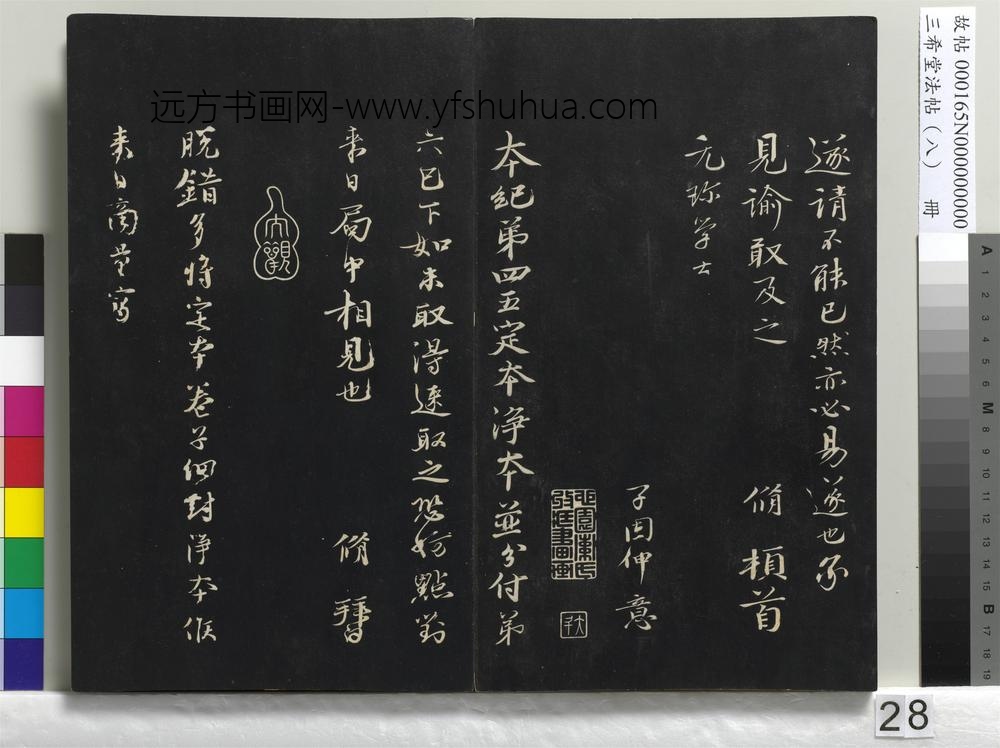 遂請不能已然亦必易遂也不
見諭敢及之 脩 頓首
元珍学士
子因伸意
本紀第四五定本浄本並分付弟
六已下如未取得速取之恐妨點對
来日局中相見也 脩 
脱錯多将定本卷子細對浄本候
来日商量寫
大觀
远方书画网-www.yfshuhua.com
故帖 000165N000000000
三希堂法帖（八） 冊
28
A 1 2 3 4 5 6 M 8 9 10 11 12 13 14 15 B 17 18 19